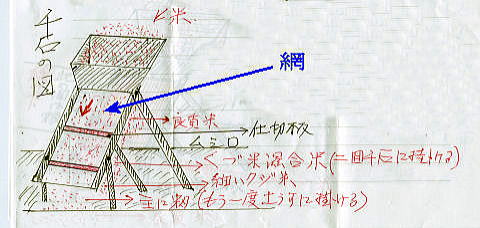 千石の図
網
良質米
仕切板
ムシロ
くづ米混合米(二回千石に掛ける)
細いクジ米
主に籾(もう一度土うすに掛ける)